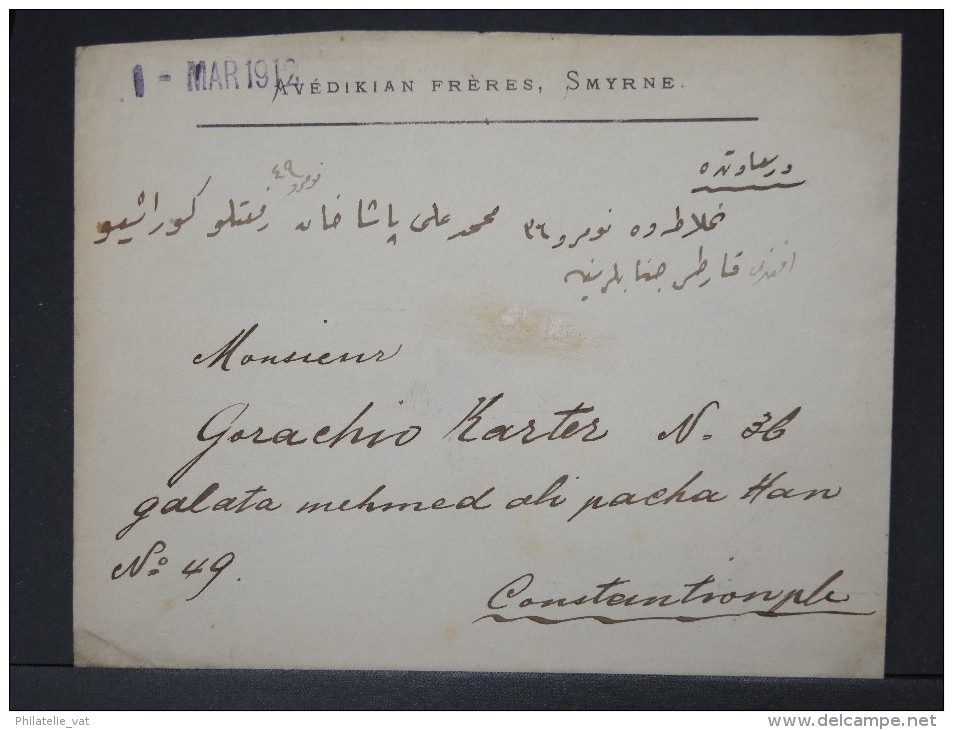 1 - MAR 1912
AVÉDIKIAN FRÈRES, SMYRNE.
درسعادتده
غلاطه ده نومرو ٣٦ محمد علی پاشا خان نومرو ٤٩ رفعتلو کوراشیو
افندی قارطر جنابلرینه
Monsieur
Gorachio Karter N. 36
galata mehmed ali pacha Han
No 49.
Constantionple
Philatelie_vat
www.delcampe.net